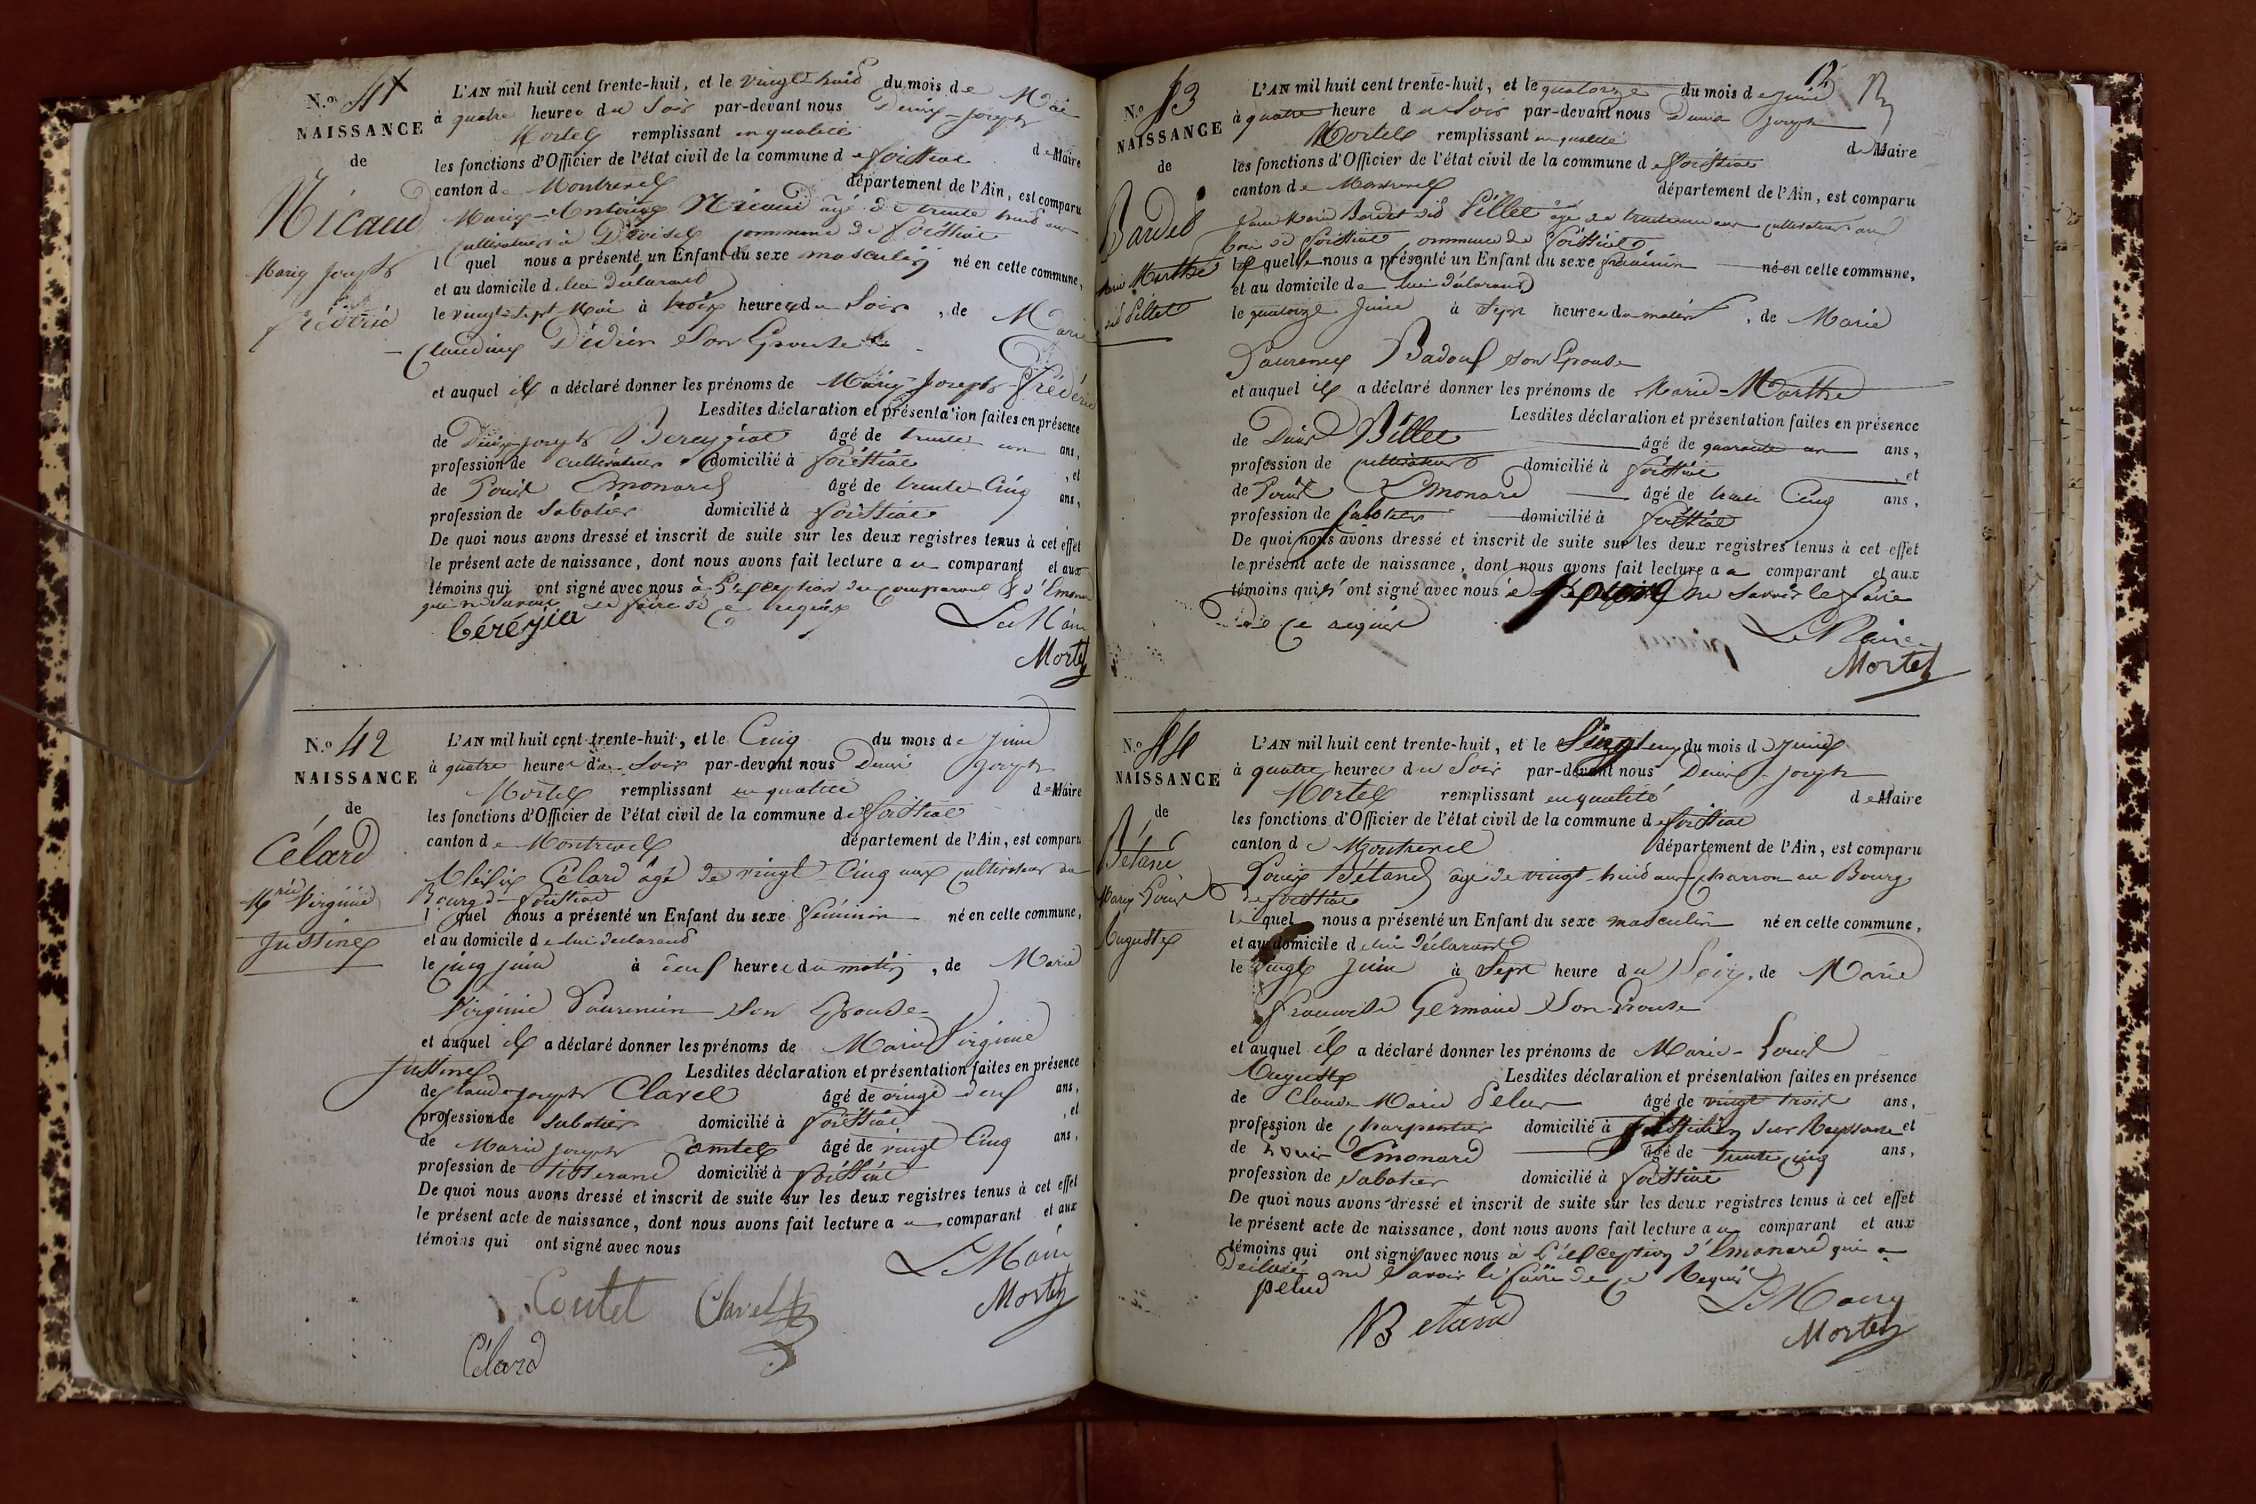 N.o 41
NAISSANCE
de
Nicaud
Marie Joseph
frédéric
L'AN mil huit cent trente-huit, et le vingt-huit du mois de Mai
à quatre heures du Soir par-devant nous Denis-Joseph
Mortel remplissant en qualité de Maire
les fonctions d'Officier de l'état civil de la commune de foissiat
canton de Montrevel département de l'Ain, est comparu
Marie-Antoine Nicaud âgé de trente huit ans
cultivateur à commune de foissiat
lequel nous a présenté un Enfant du sexe masculin né en cette commune,
et au domicile de lui déclarant
le vingt-sept Mai à trois heures du Soir, de Marie
Claudine Didier Son Epouse
et auquel il a déclaré donner les prénoms de Marie-Joseph-Frédéric
Lesdites déclaration et présentation faites en présence
de Denis-Joseph âgé de trente un ans,
profession de cultivateur domicilié à foissiat, et
de Louis Emonard âgé de trente-Cinq ans,
profession de Sabotier domicilié à foissiat
De quoi nous avons dressé et inscrit de suite sur les deux registres tenus à cet effet
le présent acte de naissance, dont nous avons fait lecture au comparant et aux
témoins qui ont signé avec nous à l'exception du Comparant & d'Emonard
qui ne savent le faire de ce requis
bérézia
Le Maire
Mortel
N.o 42
NAISSANCE
de
Célard
Mrie Virginie
Justine
L'AN mil huit cent trente-huit, et le Cinq du mois de Juin
à quatre heures du Soir par-devant nous Denis Joseph
Mortel remplissant en qualité de Maire
les fonctions d'Officier de l'état civil de la commune de foissiat
canton de Montrevel département de l'Ain, est comparu
Célard âgé de vingt-Cinq ans cultivateur au
Bourg de foissiat
lequel nous a présenté un Enfant du sexe féminin né en cette commune,
et au domicile de lui déclarant
le Cinq juin à neuf heures du matin, de Marie
Virginie Laurencin Son Epouse
et auquel il a déclaré donner les prénoms de Marie Virginie
Justine Lesdites déclaration et présentation faites en présence
de Claude Joseph Clavel âgé de vingt-neuf ans,
profession de sabotier domicilié à foissiat, et
de Marie Joseph âgé de vingt Cinq ans,
profession de tisserand domicilié à foissiat
De quoi nous avons dressé et inscrit de suite sur les deux registres tenus à cet effet
le présent acte de naissance, dont nous avons fait lecture au comparant et aux
témoins qui ont signé avec nous
Le Maire
Coutet Clavel Mortel
Célard
12
N.o 43
NAISSANCE
de
Bardet
Marie Marthe
dit Pillet
L'AN mil huit cent trente-huit, et le quatorze du mois de Juin
à quatre heure du Soir par-devant nous Denis Joseph
Mortel remplissant en qualité de Maire
les fonctions d'Officier de l'état civil de la commune de foissiat
canton de Montrevel département de l'Ain, est comparu
Jean Marie Bardet dit Pillet âgé de ans cultivateur au
de foissiat Commune de foissiat
lequel nous a présenté un Enfant du sexe féminin né en cette commune,
et au domicile de lui déclarant
le quatorze Juin à Sept heures du matin, de Marie
Laurence Badoux son Epouse
et auquel il a déclaré donner les prénoms de Marie-Marthe
Lesdites déclaration et présentation faites en présence
de Denis Billet âgé de quarante un ans,
profession de cultivateur domicilié à foissiat, et
de Louis Emonard âgé de trente Cinq ans,
profession de sabotier domicilié à foissiat
De quoi nous avons dressé et inscrit de suite sur les deux registres tenus à cet effet
le présent acte de naissance, dont nous avons fait lecture au comparant et aux
témoins qui n'ont signé avec nous ne Savoir le faire
de Ce requis
Le Maire
Mortel
N.o 44
NAISSANCE
de
Bétand
Marie Louis
Auguste
L'AN mil huit cent trente-huit, et le Vingt un du mois de Juin
à quatre heures du Soir par-devant nous Denis-Joseph
Mortel remplissant en qualité de Maire
les fonctions d'Officier de l'état civil de la commune de foissiat
canton de Montrevel département de l'Ain, est comparu
Louis Bétand âgé de vingt-huit ans Charron au Bourg
de foissiat
lequel nous a présenté un Enfant du sexe masculin né en cette commune,
et au domicile de lui déclarant
le vingt Juin à Sept heure du Soir, de Marie
françoise Germain Son Epouse
et auquel il a déclaré donner les prénoms de Marie-Louis
Auguste Lesdites déclaration et présentation faites en présence
de Claude Marie Pelus âgé de vingt trois ans,
profession de Charpentier domicilié à sur Reyssouze et
de Louis Emonard âgé de trente cinq ans,
profession de sabotier domicilié à foissiat
De quoi nous avons dressé et inscrit de suite sur les deux registres tenus à cet effet
le présent acte de naissance, dont nous avons fait lecture au comparant et aux
témoins qui ont signé avec nous à l'exception d'Emonard qui a
Déclaré ne Savoir le faire de ce Requis
pelud
Le Maire
Betand
Mortel